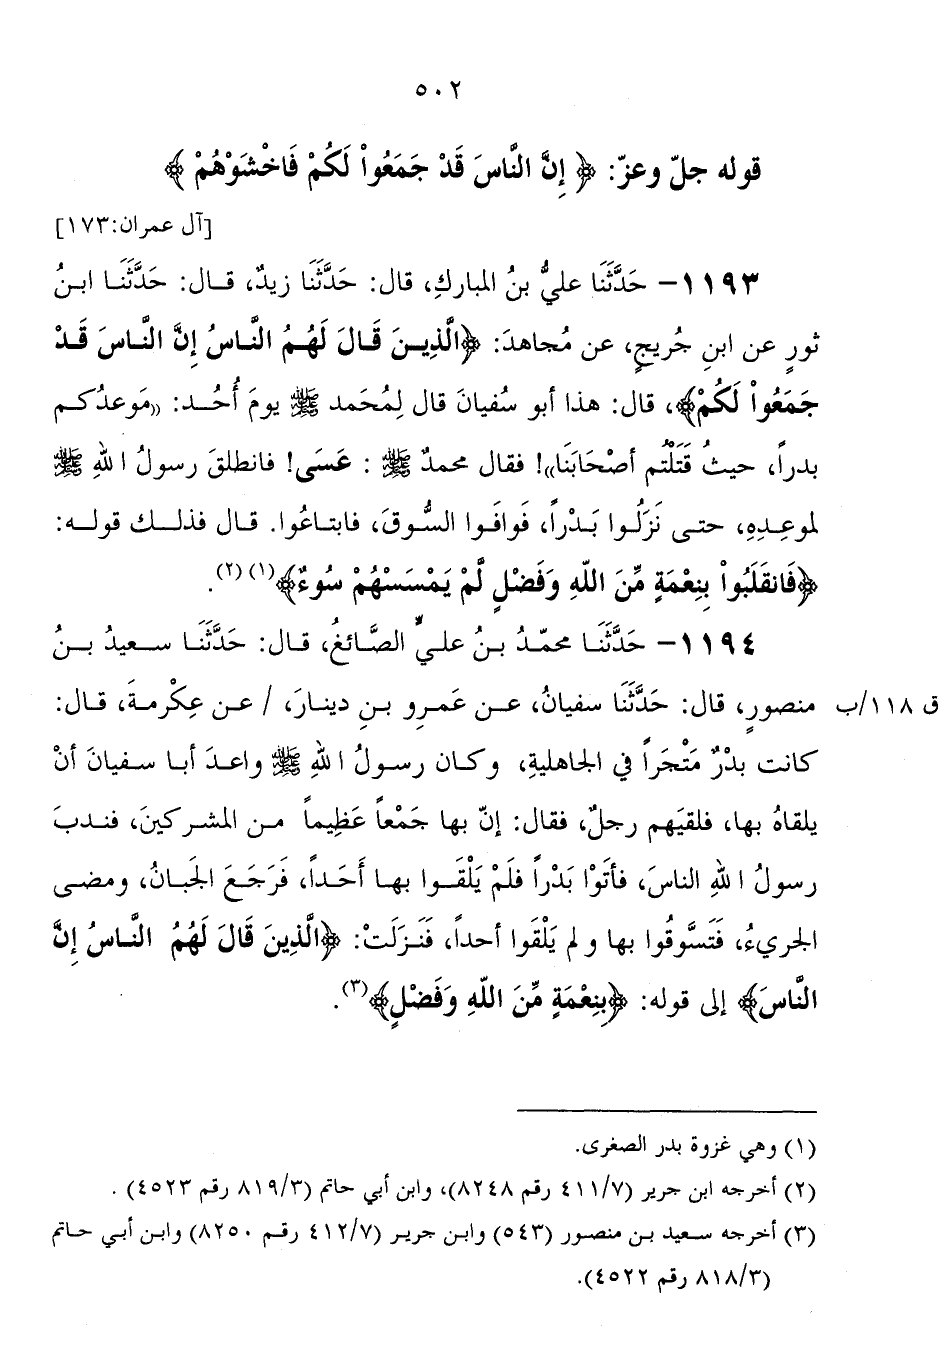 ٥٠٢
قوله جلّ وعزّ: ﴿ إِنَّ النَّاسَ قَدْ جَمَعُواْ لَكُمْ فَاخْشَوْهُمْ ﴾
[آل عمران:١٧٣]
١١٩٣- حَدَّثَنَا عليُّ بنُ المباركِ، قال: حَدَّثَنَا زيدٌ، قـال: حَدَّثَنَـا ابـنُ
ثورٍ عن ابنِ جُريجٍ، عن مُجاهدَ: ﴿الَّذِيـنَ قَـالَ لَهُـمُ النَّـاسُ إِنَّ النَّـاسَ قَـدْ
جَمَعُواْ لَكُمْ﴾، قال: هذا أبو سُفيانَ قال لِمُحَمد ﷺ يومَ أُحُـد: «مَوعدُكـم
بدراً، حيثُ قَتَلْتُم أصْحَابَنَا»! فقال محمدٌ ﷺ : عَسَى! فانطلقَ رسولُ اللهِ ﷺ
لموعِدِهِ، حتـى نَزَلُـوا بَـدْراً، فَوافَـوا السُّوقَ، فابتـاعُوا. قـال فذلـك قولـه:
﴿فَانقَلَبُواْ بِنِعْمَةٍ مِّنَ اللّهِ وَفَضْلٍ لَّمْ يَمْسَسْهُمْ سُوءٌ﴾(١)(٢).
١١٩٤- حَدَّثَنَـا محمّـدُ بـنُ علـيٍّ الصَّـائغُ، قـال: حَدَّثَنَـا سـعيدُ بـنُ
منصورٍ، قال: حَدَّثَنَا سفيانُ، عـن عَمـرو بـنِ دينـارَ، / عـن عِكْرمـةَ، قـال: ق ١١٨/ب
كانت بدْرٌ مَتْجَراً في الجاهليةِ، وكـان رسـولُ اللهِ ﷺ واعـدَ أبـا سـفيانَ أنْ
يلقاهُ بها، فلقيَهم رجلٌ، فقال: إنّ بها جَمْعاً عَظِيماً مـن المشـركينَ، فنـدبَ
رسولُ اللهِ الناسَ، فأتَوْا بَدْراً فلَمْ يَلْقَـوا بهـا أَحَـداً، فَرَجَـعَ الجَبـانُ، ومضـى
الجريءُ، فَتَسَّوقُوا بها ولم يَلْقَوا أحداً، فَنَـزَلَتْ: ﴿الَّذِينَ قَالَ لَهُمُ النَّـاسُ إِنَّ
النَّاسَ﴾ إلى قوله: ﴿بِنِعْمَةٍ مِّنَ اللّهِ وَفَضْلٍ﴾(٣).
(١) وهي غزوة بدر الصغرى.
(٢) أخرجه ابن جرير (٤١١/٧ رقم ٨٢٤٨)، وابن أبي حاتم (٨١٩/٣ رقم ٤٥٢٣) .
(٣) أخرجه سـعيد بـن منصـور (٥٤٣) وابـن جريـر (٤١٢/٧ رقـم ٨٢٥٠) وابـن أبـي حـاتم
(٨١٨/٣ رقم ٤٥٢٢).